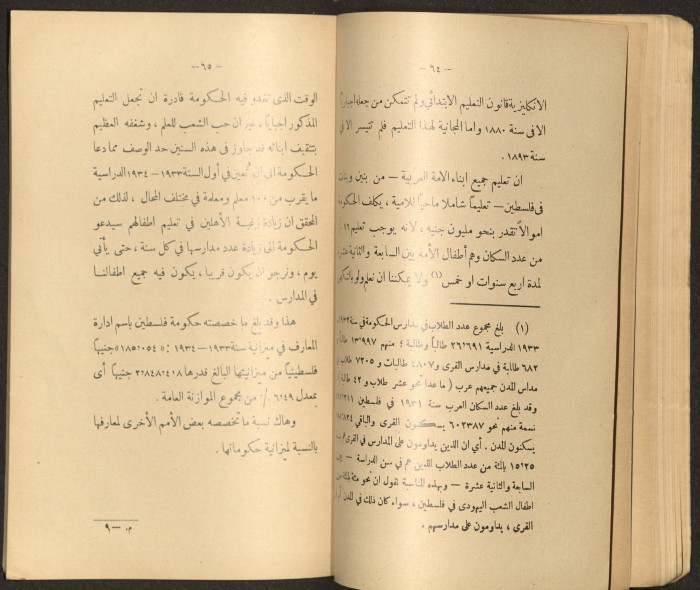 — ٦٤ —
الانكليزية قانون التعليم الابتدائي ولم تتمكن من جعله اجباريًا
الا في سنة ١٨٨٠ واما المجانية لهذا التعليم فلم تتيسر الا في
سنة ١٨٩٣.
ان تعليم جميع ابناء الامة العربية — من بنين وبنات
في فلسطين — تعليمًا شاملا ماحيًا للامية، يكلف الحكومة
اموالاً تقدر بنحو مليون جنيه، لانه يوجب تعليم
من عدد السكان وهم أطفال الأمة بين السابعة والثانية عشرة
لمدة اربع سنوات او خمس (١) ولا يمكننا ان نعلم ولو بالتكهن
(١) بلغ مجموع عدد الطلاب في مدارس الحكومة في سنة
١٩٣٣ الدراسية ٢٦٬٦٩١ طالبًا وطالبة ؛ منهم ١٣٬٩٩٧ طالبًا
٦٨٢ طالبة في مدارس القرى و٤٨٠٧ طالبات و ٧٢٠٥ طلاب
مدارس المدن جميعهم عرب ( ما عدا نحو عشر طلاب و ٤٢ طالبة )
وقد بلغ عدد السكان العرب سنة ١٩٣١ في فلسطين
نسمة منهم نحو ٦٠٢٣٨٧ يسكنون القرى والباقي
يسكنون المدن . أي ان الذين يداومون على المدارس في القرى
١٥١٢٥ بالمئة من عدد الطلاب الذين هم في سن الدراسة —
السابعة والثانية عشرة — وبهذه المناسبة نقول ان نحو مئة بالمئة من
اطفال الشعب اليهودي في فلسطين ، سواء كان ذلك في المدن أو
القرى ، يداومون على مدارسهم .
— ٦٥ —
الوقت الذي تغدو فيه الحكومة قادرة ان تجعل التعليم
المذكور اجباريًا، غير ان حب الشعب للعلم ، وشغفه العظيم
بتثقيف ابنائه قد جاوز في هذه السنين حد الوصف مما دعا
الحكومة الى ان تُعين في أول السنة ١٩٣٣ـ١٩٣٤ الدراسية
ما يقرب من ١٠٠ معلم ومعلمة في مختلف المحال ، لذلك من
المحقق ان زيادة رغبة الأهلين في تعليم اطفالهم سيدعو
الحكومة الى زيادة عدد مدارسها في كل سنة ، حتى يأتي
يوم ، ونرجو ان يكون قريبا ، يكون فيه جميع اطفالنا
في المدارس .
هذا وقد بلغ ما خصصته حكومة فلسطين باسم ادارة
المعارف في ميزانية سنة ١٩٣٣ـ١٩٣٤ : «١٨٥٬٠٥٤» جنيهًا
فلسطينيًا من ميزانيتها البالغ قدرها ٢٬٨٤٨٬٤١٨ جنيهًا أى
بمعدل ٦٬٤٩ ٪ من مجموع الموازنة العامة .
وهاك نسبة ما تخصصه بعض الأمم الأخرى لمعارفها
بالنسبة لميزانية حكوماتها .
م. — ٩